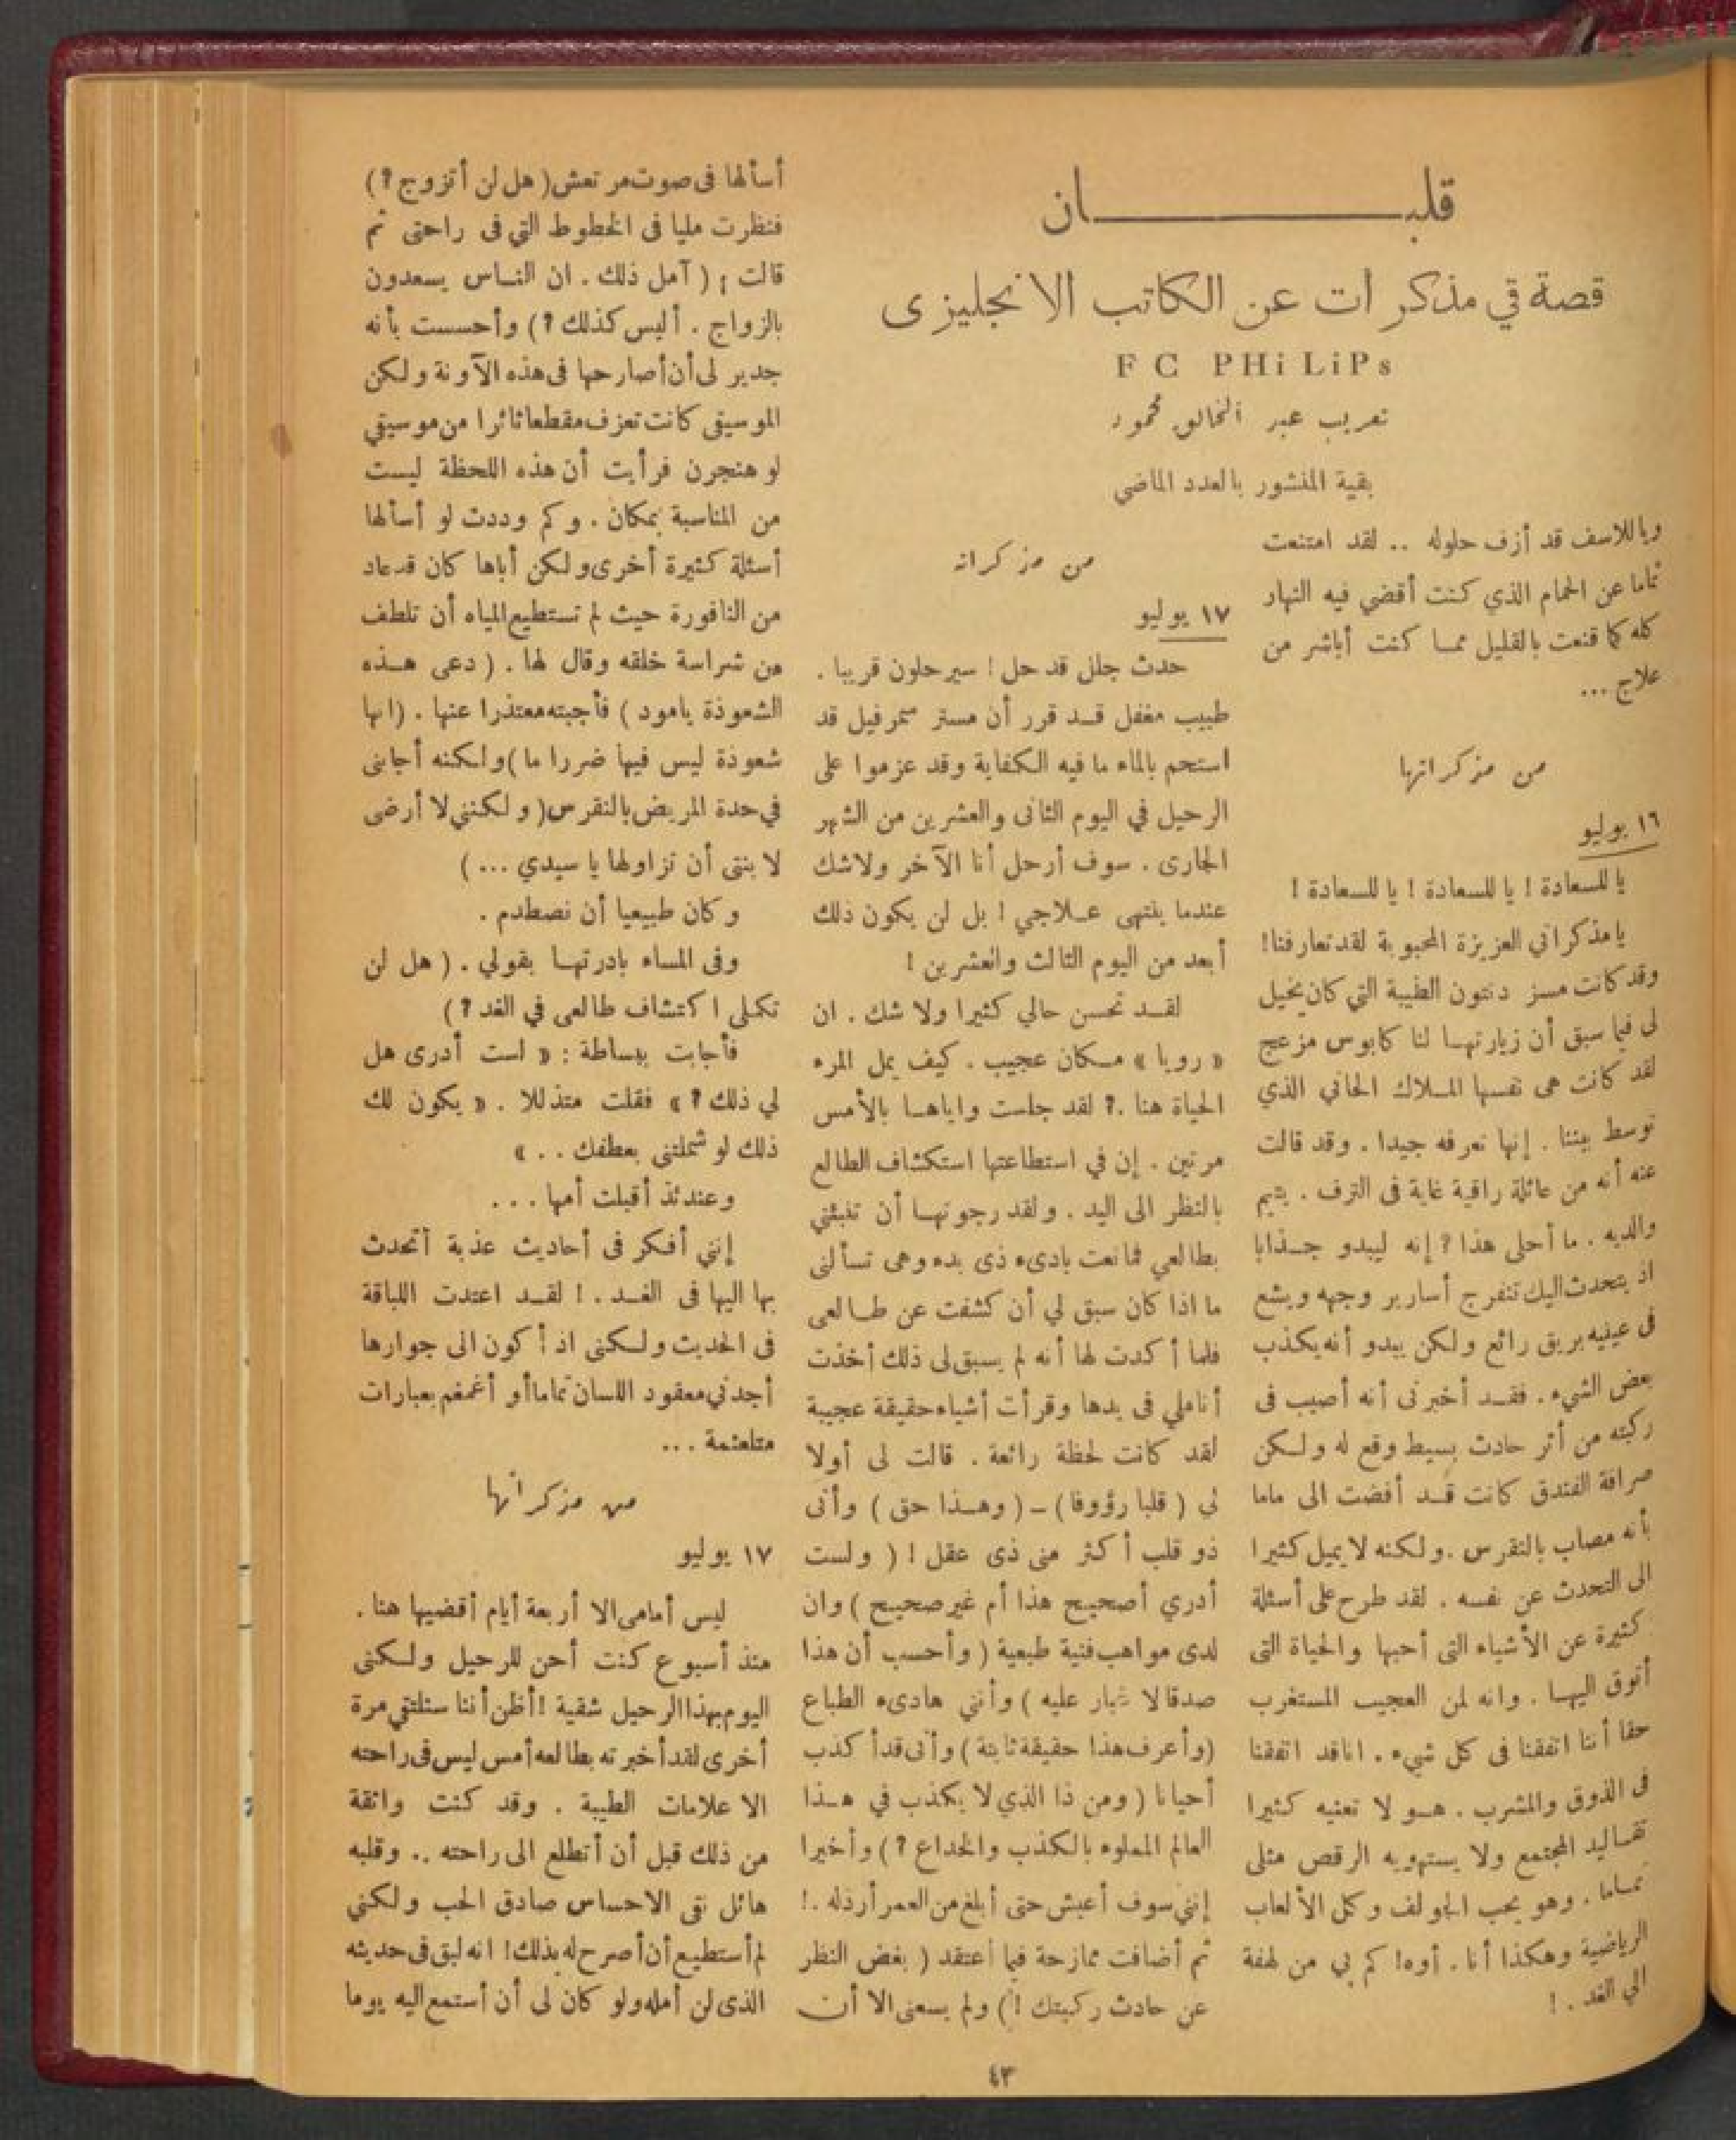 قلبــــــــــان
قصة في مذكرات عن الكاتب الانجليزى
F C PHiLiPs
تعريب عبد الخالق محمود
بقية المنشور بالعدد الماضي
وياللاسف قد أزف حلوله .. لقد امتنعت
تماما عن الحمام الذي كنت أقضي فيه النهار
كله كما قنعت بالقليل ممـا كنت أباشر من
علاج ...
من مذكراتها
١٦ يوليو
يا للسعادة ! يا للسعادة ! يا للسعادة !
يامذكراتي العزيزة المحبوبة لقد تعارفنا!
وقد كانت مسز دنتون الطيبة التي كان يخيل
لى فيما سبق أن زيارتهـا لنا كابوس مزعج
لقد كانت هى نفسها المـلاك الحاني الذي
توسط بيننا . إنها تعرفه جيدا . وقد قالت
عنه أنه من عائلة راقية غاية فى الترف . يتيم
والديه . ما أحلى هذا ? إنه ليبدو جـذابا
اذ يتحدث اليك تنفرج أسارير وجهه ويشع
فى عينيه بريق رائع ولكن يبدو أنه يكذب
بعض الشىء . فقـد أخبرنى أنه أصيب فى
ركبته من أثر حادث بسيط وقع له ولـكن
صرافة الفندق كانت قـد أفضت الى ماما
بأنه مصاب بالنقرس . ولكنه لا يميل كثيرا
الى التحدث عن نفسه . لقد طرح على أسئلة
كثيرة عن الأشياء التى أحبها والحياة التى
أتوق اليهـا . وانه لمن العجيب المستغرب
حقا أننا اتفقنا فى كل شىء . اناقد اتفقنا
فى الذوق والمشرب . هـو لا تعنيه كثيرا
تقـاليد المجتمع ولا يستهويه الرقص مثلى
تمـاما . وهو يحب الجولف وكل الألعاب
الرياضية وهكذا أنا . أوه! كم بي من لهفة
الي الغد . !
من مذكراته
١٧ يوليو
حدث جلل قد حل ! سيرحلون قريبا .
طبيب مغفل قـد قرر أن مستر سمرفيل قد
استحم بالماء ما فيه الكفاية وقد عزموا على
الرحيل في اليوم الثانى والعشرين من الشهر
الجارى . سوف أرحل أنا الآخر ولاشك
عندما ينتهى عـلاجي ! بل لن يكون ذلك
أبعد من اليوم الثالث والعشرين !
لقـد تحسن حالي كثيرا ولا شك . ان
« رويا » مـكان عجيب . كيف يمل المرء
الحياة هنا .? لقد جلست واياهـا بالأمس
مرتين . إن في استطاعتها استكشاف الطالع
بالنظر الى اليد . ولقد رجوتهـا أن تنبئني
بطالعي فمانعت بادىء ذى بدء وهى تسألنى
ما اذا كان سبق لي أن كشفت عن طـالعى
فلما أكدت لها أنه لم يسبق لى ذلك أخذت
أناملي فى يدها وقرأت أشياء حقيقة عجيبة
لقد كانت لحظة رائعة . قالت لى أولا
لي ( قلبا رؤوفا ) – ( وهـذا حق ) وأنى
ذو قلب أكثر منى ذى عقل ! ( ولست
أدري أصحيح هذا أم غير صحيح ) وان
لدى مواهب فنية طبعية ( وأحسب أن هذا
صدقا لا غبار عليه ) وأنني هادىء الطباع
( وأعرف هذا حقيقة ثابتة ) وأنى قد أكذب
أحيانا ( ومن ذا الذي لا يكذب في هـذا
العالم المملوء بالكذب والخداع ? ) وأخيرا
إنني سوف أعيش حتى أبلغ من العمر أرذله . !
ثم أضافت ممازحة فيما أعتقد ( بغض النظر
عن حادث ركبتك !) ولم يسعنى الا أن
أسألها فى صوت مرتعش ( هل لن أتزوج ? )
فنظرت مليا فى الخطوط التي فى راحتى ثم
قالت : ( آمل ذلك . ان النـاس يسعدون
بالزواج . أليس كذلك ? ) وأحسست بأنه
جدير لى أن أصارحها فى هذه الآونة ولكن
الموسيقى كانت تعزف مقطعا ثائرا من موسيقي
لوهنجرن فرأيت أن هذه اللحظة ليست
من المناسبة بمكان . وكم وددت لو أسألها
أسئلة كثيرة أخرى ولكن أباها كان قد عاد
من النافورة حيث لم تستطيع المياه أن تلطف
من شراسة خلقه وقال لها . ( دعى هـذه
الشعوذة يامود ) فأجبته معتذرا عنها . ( انها
شعوذة ليس فيها ضررا ما ) ولكنه أجابنى
في حدة المريض بالنقرس ( ولكنني لا أرضى
لابنتى أن تزاولها يا سيدي ... )
وكان طبيعيا أن نصطدم .
وفى المساء بادرتهـا بقولي . ( هل لن
تكملى اكتشاف طالعى في الغد ? )
فأجابت ببساطة : « لست أدرى هل
لي ذلك ? » فقلت متذللا . « يكون لك
ذلك لو شملتنى بعطفك .. »
وعندئذ أقبلت أمها ...
إنني أفكر فى أحاديث عذبة أتحدث
بها اليها فى الغـد . ! لقـد اعتدت اللباقة
فى الحديث ولـكنى اذ أكون الى جوارها
أجدني معقود اللسان تماما أو أغمغم بعبارات
متلعثمة ...
من مذكراتها
١٧ يوليو
ليس أمامى الا أربعة أيام أقضيها هنا .
منذ أسبوع كنت أحن للرحيل ولـكنى
اليوم بهذا الرحيل شقية ! أظن أننا سنلتقي مرة
أخرى لقد أخبرته بطالعه أمس ليس فى راحته
الا علامات الطيبة . وقد كنت واثقة
من ذلك قبل أن أتطلع الى راحته .. وقلبه
هائل نقى الاحساس صادق الحب ولكني
لم أستطيع أن أصرح له بذلك ! انه لبق فى حديثه
الذى لن أمله ولو كان لى أن أستمع اليه يوما
٤٣